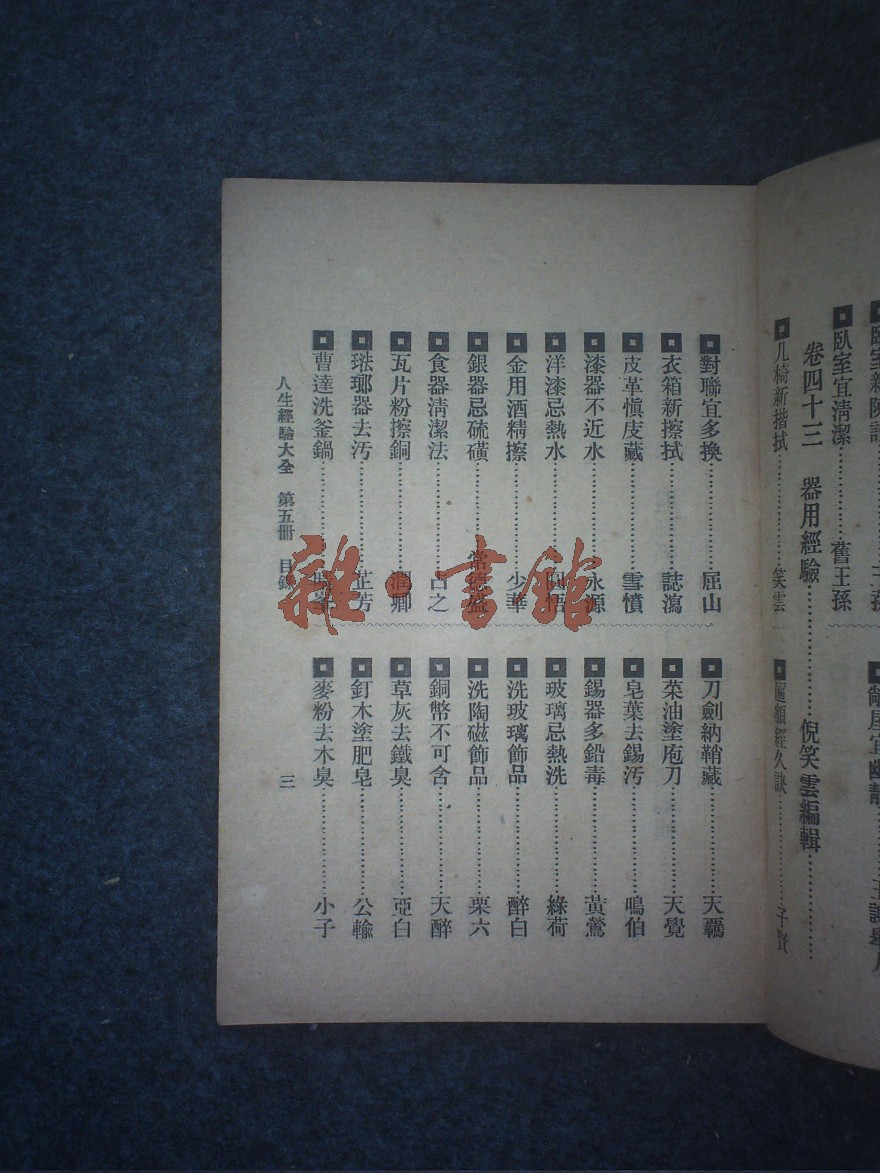 臥室宜清潔……舊王孫
卷四十三 器用經驗……倪笑雲編輯……
几椅新揩拭……笑雲
匾額經久訣……子賢
對聯宜多換……屈山
衣箱新擦拭……誌瀉
皮革愼庋藏……雪憤
漆器不近水……永源
洋漆忌熱水
金用酒精擦……少華
銀器忌硫磺……常德盛
食器淸潔法……占之
瓦片粉擦銅……潤卿
琺瑯器去汚……芷芳
曹達洗釜鍋
刀劍納鞘藏……天覊
菜油塗庖刀……天覺
皂葉去錫汚……鳴伯
錫器多鉛毒……黃鶯
玻璃忌熱洗……綠荷
洗玻璃飾品……醉白
洗陶磁飾品……栗六
銅幣不可含……天醉
草灰去鐵臭……亞白
釘木塗肥皂……公輸
麥粉去木臭……小子
人生經驗大全 第五冊 目錄
三
雜·書館